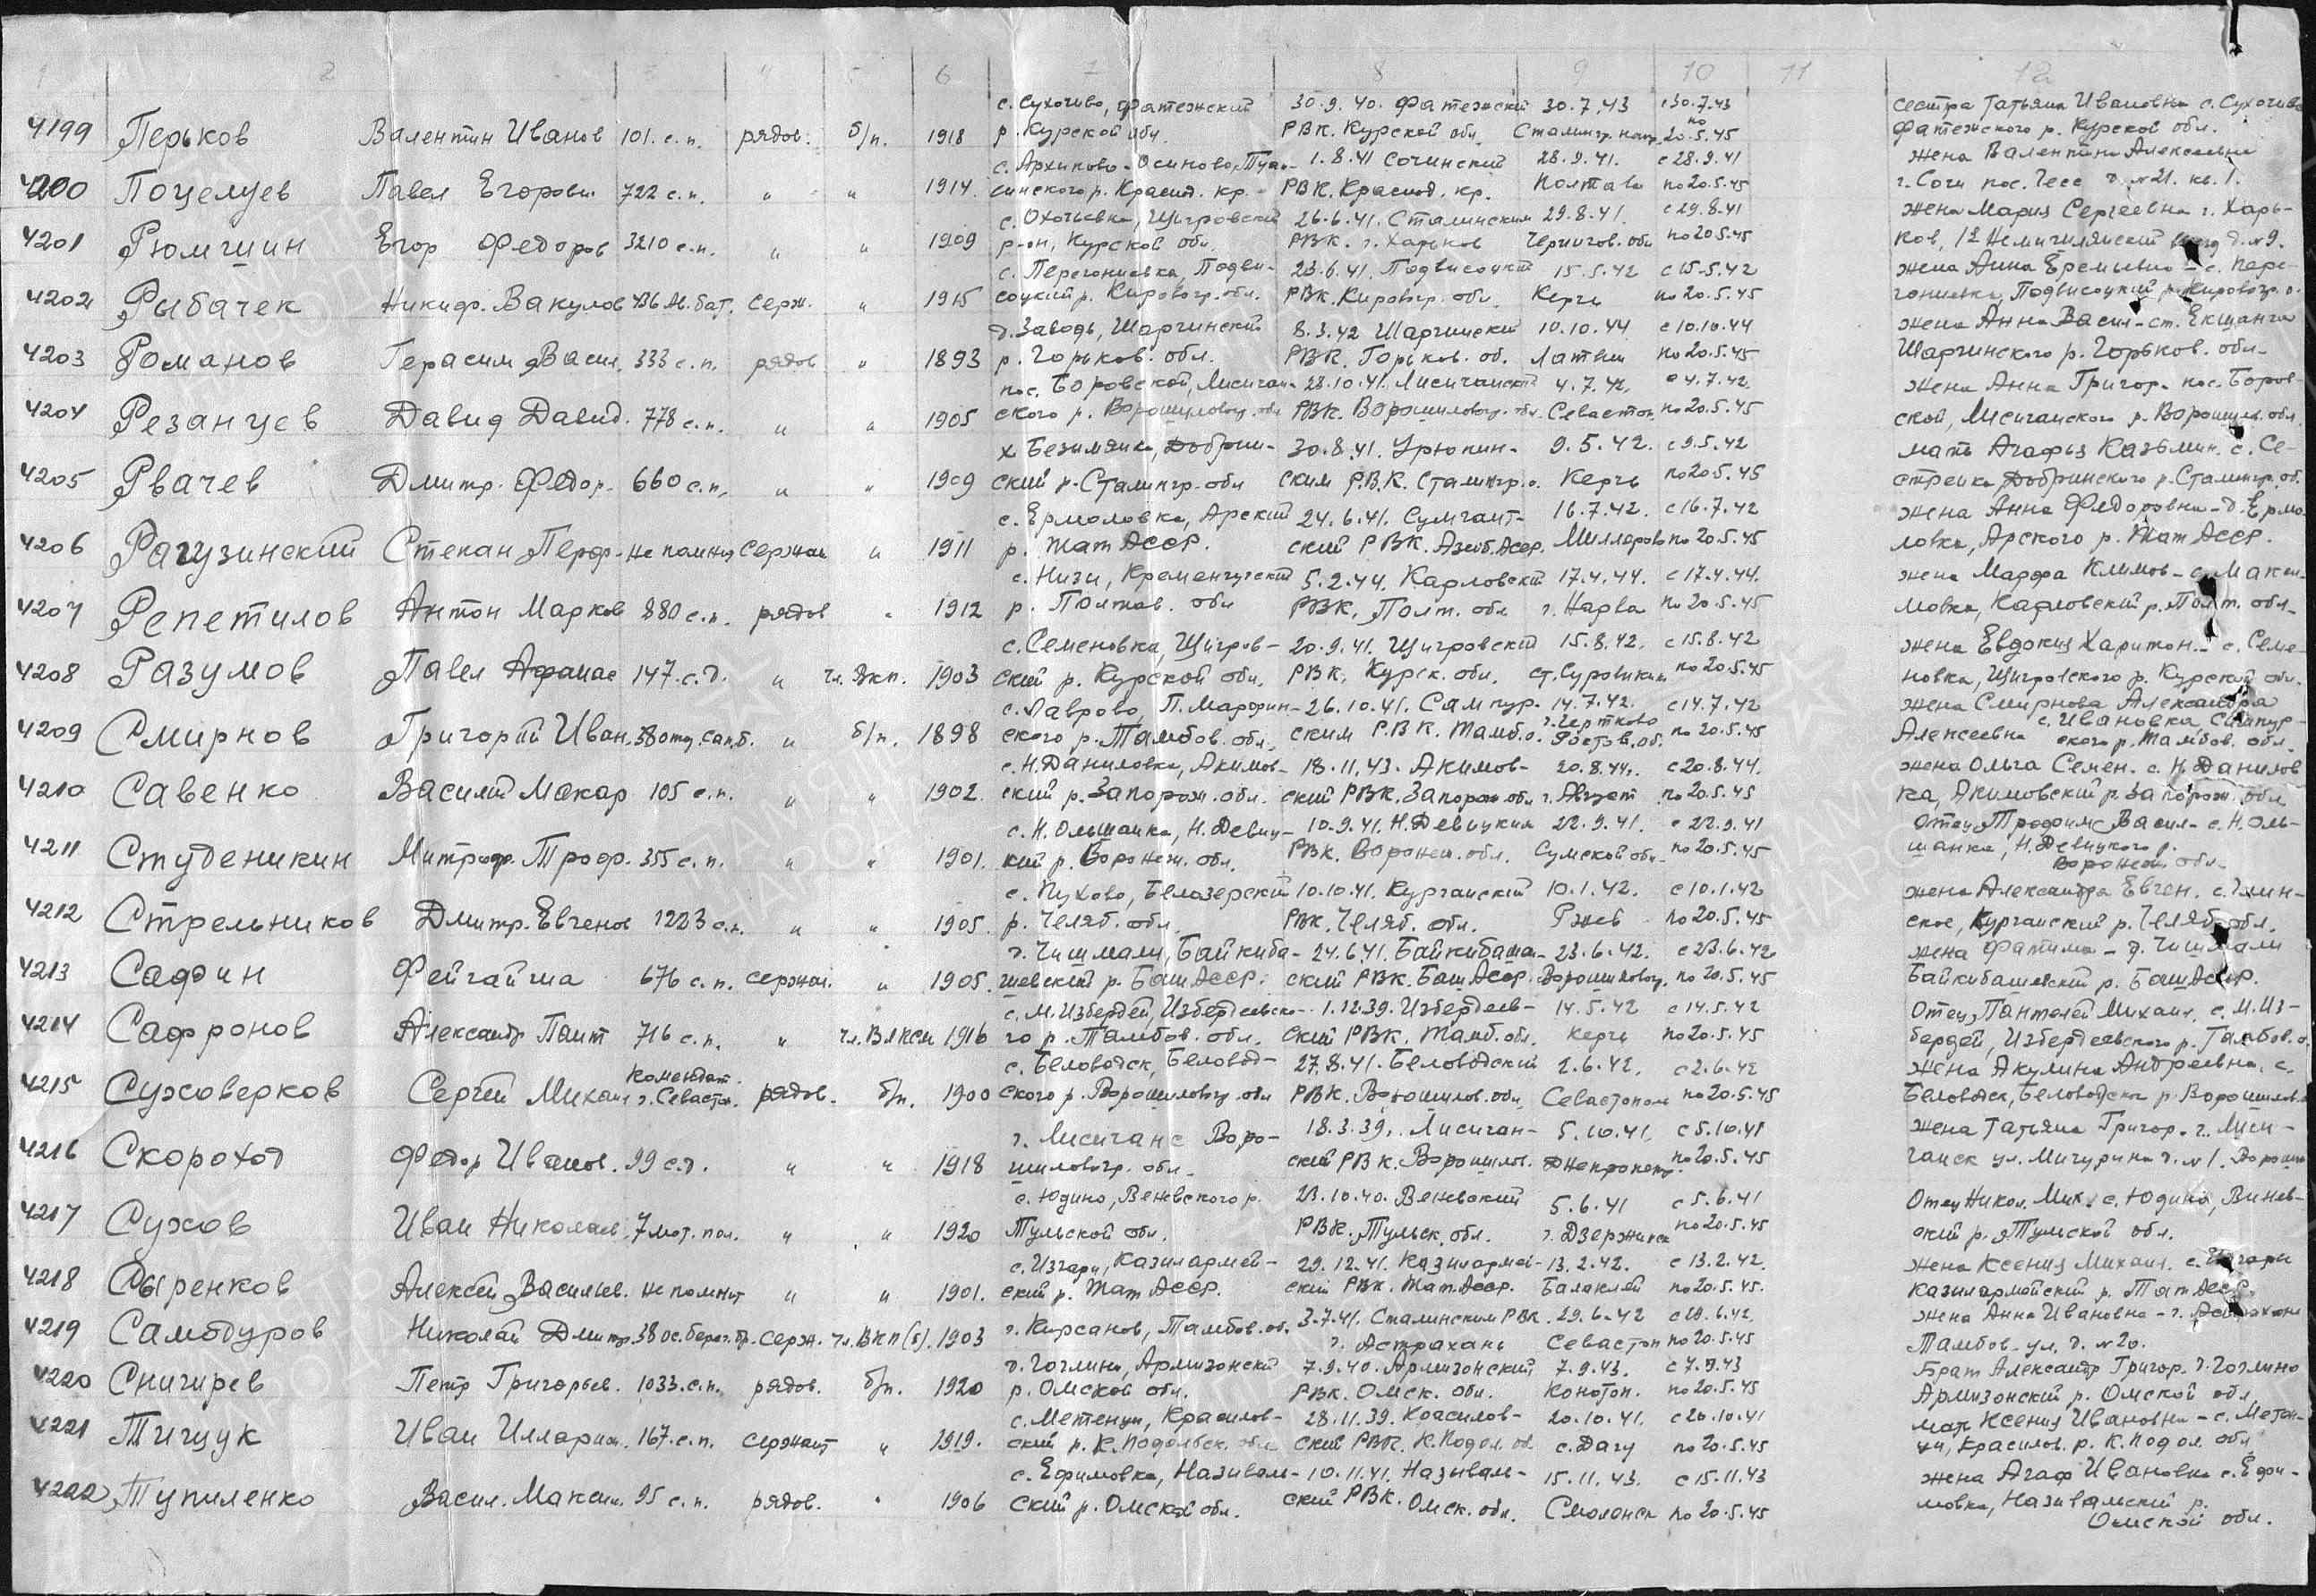 1 2 3 4 5 6 7 8 9 10 11 12
4199 Перьков Валентин Иванов 101 с.п. рядов. б/п. 1918 с. Сухочево, Фатежский р. Курской обл. 30.9.40. Фатежский РВК. Курской обл. 30.7.43 Сталингр. с 30.7.43 по 20.5.45 сестра Татьяна Ивановна с. Сухочево Фатежского р. Курской обл.
4200 Поцелуев Павел Егорови. 722 с.п. " " 1914. с. Архипово-Осиново, Туапсинского р. Краснд. кр. 1.8.41 Сочинский РВК. Краснод. кр. 28.9.41. Полтава с 28.9.41 по 20.5.45 жена Валентина Алексеевна г. Сочи пос. д. №21. кв. 1.
4201 Рюмшин Егор Федоров 3210 с.п. " " 1909 с. Охочьевка, Щигровский р-он, Курской обл. 26.6.41. Сталинским РВК. г. Харьков 29.8.41. Чернигов. обл с 29.8.41 по 20.5.45 жена Мария Сергеевна г. Харьков, д. №9.
4202 Рыбачек Никифр. Вакулов 436 Ав. бат. серж. " 1915 с. Перегониевка, Подвисоцкий р. Кировогр. обл. 23.6.41. Подвисоцкий РВК. Кировогр. обл. 15.5.42 Керчь с 15.5.42 по 20.5.45 жена Анна Еремьевна - с. Перегониевка, Подвисоцкий р. Кировогр. о.
4203 Романов Герасим Васил. 333 с.п. рядов " 1893 д. Заводь, Шаргинский р. Горьков. обл. 8.3.42 Шаргинский РВК. Горьков. об. 10.10.44 Латвии с 10.10.44 по 20.5.45 жена Анна Васил - ст. Екшанга Шаргинского р. Горьков. обл.
4204 Резанцев Давид Давид. 778 с.п. " " 1905 пос. Боровской, Лисичанского р. Ворошиловгр. обл 28.10.41. Лисичанский РВК. Ворошиловгр. обл. 4.7.42. Севастоп. с 4.7.42. по 20.5.45 жена Анна Григор. пос. Боровской, Лисичанского р. Ворошилв. обл.
4205 Рвачев Дмитр. Федор. 660 с.п. " " 1909 х Безимянка, Добринский р. Сталингр. обл 30.8.41. Урюпинским Р.В.К. Сталингр. о. 9.5.42. Керчь с 9.5.42 по 20.5.45 мать Агафья Казьмин. с. Сестренка, Добринского р. Сталингр. об.
4206 Рагузинский Степан Перф. не помнит сержан " 1911 с. Ермоловка, Арский р. Тат АССР. 24.6.41. Сумгаитский РВК. Азерб. АССР. 16.7.42. Миллерово с 16.7.42 по 20.5.45 жена Анна Федоровна - д. Ермоловка, Арского р. Тат АССР.
4207 Репетилов Антон Марков 880 с.п. рядов " 1912 с. Низи, Кременчугский р. Полтав. обл 5.2.44. Карловский РВК, Полт. обл 17.4.44. г. Нарва с 17.4.44. по 20.5.45 жена Марфа Климов - с. Максимовка, Карловский р. Полт. обл.
4208 Разумов Павел Афанас 147. с.д. " чл. Вкп. 1903 с. Семеновка, Щигровский р. Курской обл. 20.9.41. Щигровский РВК, Курск. обл. 15.8.42. ст. Суровикин с 15.8.42 по 20.5.45 жена Евдокия Харитон. - с. Семеновка, Щигровского р. Курской обл.
4209 Смирнов Григорий Иван. 38 отд. сап. б. " б/п. 1898 с. Лаврово, П. Марфинского р. Тамбов. обл. 26.10.41. Сампурским Р.В.К. Тамб. о. 14.7.42. г. Чертково Ростов. об. с 14.7.42 по 20.5.45 жена Смирнова Александра Алексеевна с. Ивановка Сампурского р. Тамбов. обл.
4210 Савенко Василий Макар 105 с.п. " " 1902. с. Н. Даниловка, Акимовский р. Запорож. обл. 18.11.43. Акимовский РВК. Запорож. обл 20.8.44. г. Август с 20.8.44. по 20.5.45 жена Ольга Семен. с. Н. Даниловка, Акимовский р. Запорож. обл
4211 Студеникин Митроф. Троф. 355 с.п. " " 1901. с. Н. Ольшанка, Н. Девицкий р. Воронеж. обл. 10.9.41. Н. Девицким РВК. Воронеж. обл. 22.9.41. Сумской обл. с 22.9.41 по 20.5.45 Отец Трофим Васил - с. Н. Ольшанка, Н. Девицкого р. Воронеж. обл.
4212 Стрельников Дмитр. Евгенов 1223 с.п. " " 1905. с. Пухово, Белозерский р. Челяб. обл. 10.10.41. Курганский РВК. Челяб. обл. 10.1.42. Ржев с 10.1.42 по 20.5.45 жена Александра Евген. Курганский р. Челяб. обл.
4213 Сафин Фейгайша 676 с.п. сержан. " 1905. д. Чишмали, Байкибашевский р. Баш АССР. 24.6.41. Байкибашевский РВК. Баш АССР. 23.6.42. Ворошиловгр. с 23.6.42 по 20.5.45 жена Фатима - д. Чишмали Байкибашевский р. Баш АССР.
4214 Сафронов Александр Пант 716 с.п. " чл. ВЛКСМ 1916 с. М. Избердей, Избердеевского р. Тамбов. обл. 1.12.39. Избердеевский РВК. Тамб. обл. 14.5.42 Керчь с 14.5.42 по 20.5.45 Отец Пантелей Михаил. с. М. Избердей, Избердеевского р. Тамбов. о.
4215 Суховерков Сергей Михаил Комендат. г. Севастоп. рядов. б/п. 1900 с. Беловодск, Беловодского р. Ворошиловгр. обл 27.8.41. Беловодский РВК. Ворошилов. обл. 2.6.42. Севастополь с 2.6.42 по 20.5.45 жена Акулина Андреевна. с. Беловодск, Беловодског р. Ворошилов.
4216 Скороход Федор Иванов. 99 с.д. " " 1918 г. Лисичанс Ворошиловгр. обл. 18.3.39. Лисичанский РВК. Ворошилов. 5.10.41. Днепропетр. с 5.10.41 по 20.5.45 жена Татьяна Григор. г. Лисичанск ул. Мичурина д. №1. Вороши
4217 Сухов Иван Николаев. 7 мот. пол. " " 1920 с. Юдино, Веневского р. Тульской обл. 23.10.40. Веневский РВК. Тульск. обл. 5.6.41 г. Дзержинск с 5.6.41 по 20.5.45 Отец Никол. Мих. с. Юдино, Виневский р. Тульской обл.
4218 Сыренков Алексей Васильев. не помнит " " 1901. с. Изгари, Казилармейский р. Тат АССР. 29.12.41. Казилармейский РВК. Тат АССР. 13.2.42. Балаклей с 13.2.42. по 20.5.45. жена Ксения Михаил. с. Изгари Казилармейский р. Тат АССР.
4219 Самодуров Николай Дмитр. 38 ос. берег. бр. серж. чл. ВКП(б). 1903 г. Кирсанов, Тамбов. об. 3.7.41. Сталинским РВК. г. Астрахань 29.6.42 Севастоп с 29.6.42. по 20.5.45 жена Анна Ивановна - г. Астрахань Тамбов. ул. д. №20.
4220 Снигирев Петр Григорьев. 1033. с.п. рядов. б/п. 1920 д. Гоглино, Армизонский р. Омской обл. 7.9.40. Армизонский РВК. Омск. обл. 7.9.43. Конотоп. с 7.9.43 по 20.5.45 Брат Александр Григор. д. Гоглино Армизонский р. Омской обл.
4221 Тищук Иван Илларион. 167. с.п. сержант " 1919. с. Метенци, Красиловский р. К. Подольск. обл 28.11.39. Красиловский РВК. К. Подол. об 20.10.41. с. Дагу с 20.10.41 по 20.5.45 мать Ксения Ивановна - с. Метенци, Красилов. р. К. Подол. обл
4222 Тупиленко Васил. Максим. 95 с.п. рядов. " 1906 с. Ефимовка, Называевский р. Омской обл. 10.11.41. Называевский РВК. Омск. обл. 15.11.43. Смоленск с 15.11.43 по 20.5.45 жена Агаф Ивановна с. Ефимовка, Называевский р. Омской обл.